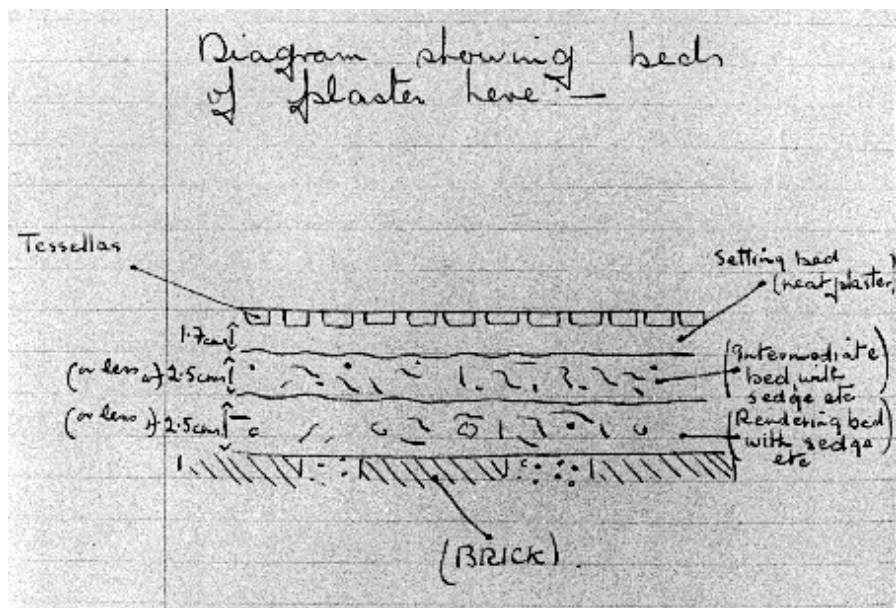 Diagram showing beds
of plaster here:—
Tessellas
Setting bed
(neat plaster)
1.7cms
(or less) 2.5cms
(Intermediate
bed with
sedge etc)
(or less) 2.5cms
(Rendering bed
with sedge
etc)
(BRICK)